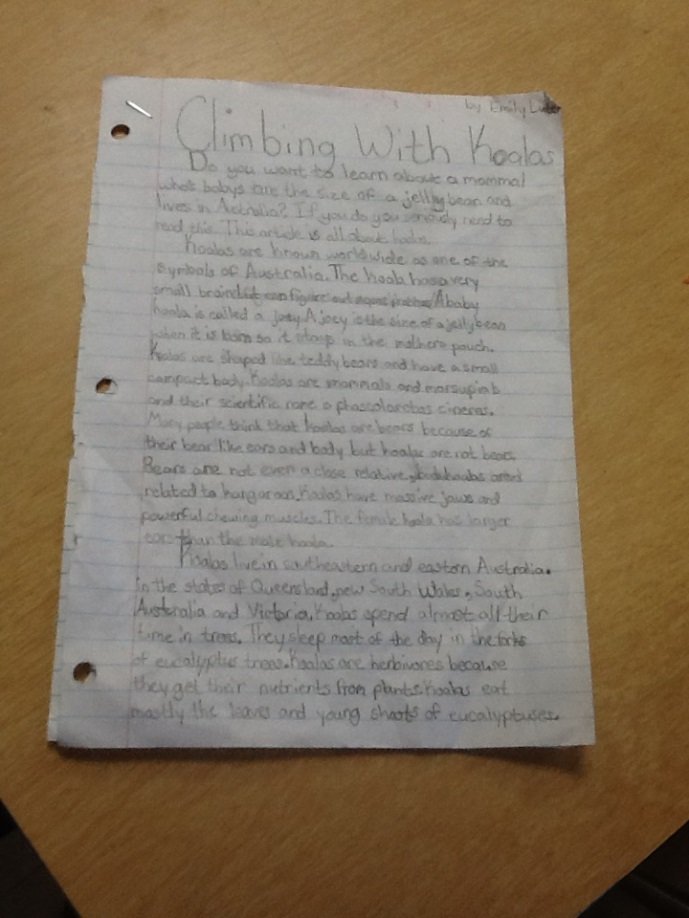 by Emily
Climbing With Koalas
Do you want to learn about a mammal
who's babys are the size of a jelly bean and
lives in Australia? If you do you seriously need to
read this. This article is all about koalas.
Koalas are known worldwide as one of the
symbols of Australia. The koala has a very
small brain but it can figure out A baby
koala is called a joey. A joey is the size of a jellybean
when it is born so it stays in the mothers pouch.
Koalas are shaped like teddy bears and have a small
compact body. Koalas are mammals and marsupials
and their scientific name is phascolarctos cinereus.
Many people think that koalas are bears because of
their bear like ears and body but koalas are not bears.
Bears are not even a close relative, but koalas are
related to kangaroos. Koalas have massive jaws and
powerful chewing muscles. The female koala has larger
ears than the male koala.
Koalas live in southeastern and eastern Australia.
In the states of Queensland, new South Wales, South
Australia and Victoria. Koalas spend almost all their
time in trees. They sleep most of the day in the forks
of eucalyptus trees. Koalas are herbivores because
they get their nutrients from plants. Koalas eat
mostly the leaves and young shoots of eucalyptuses.